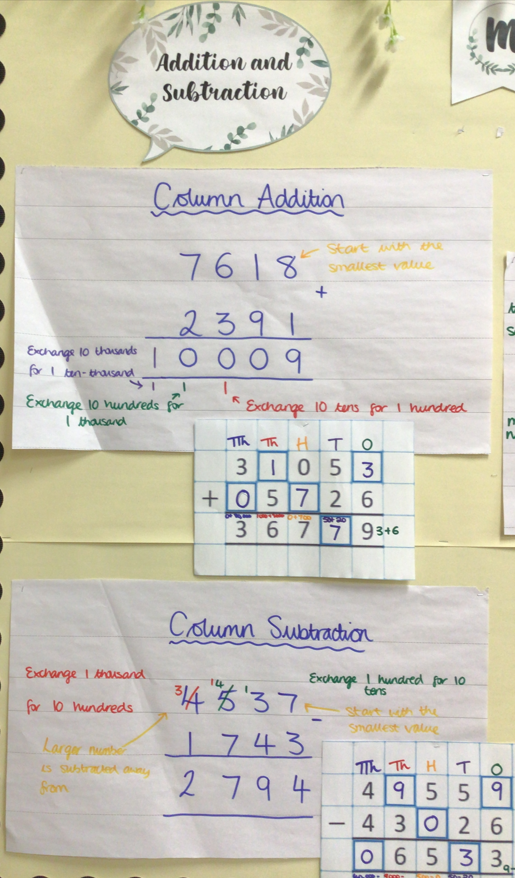 Addition and
Subtraction
Column Addition
7 6 1 8
Start with the
smallest value
+
2 3 9 1
Exchange 10 thousands
for 1 ten-thousand
1 0 0 0 9
1 1 1
Exchange 10 hundreds for
1 thousand
Exchange 10 tens for 1 hundred
TTh Th H T O
3 1 0 5 3
+ 0 5 7 2 6
3 6 7 7 9 3+6
Column Subtraction
Exchange 1 thousand
for 10 hundreds
Exchange 1 hundred for 10
tens
3 4 14 5 1 3 7
-
Start with the
smallest value
Larger number
is subtracted away
from
1 7 4 3
2 7 9 4
TTh Th H T O
4 9 5 5 9
- 4 3 0 2 6
0 6 5 3 3